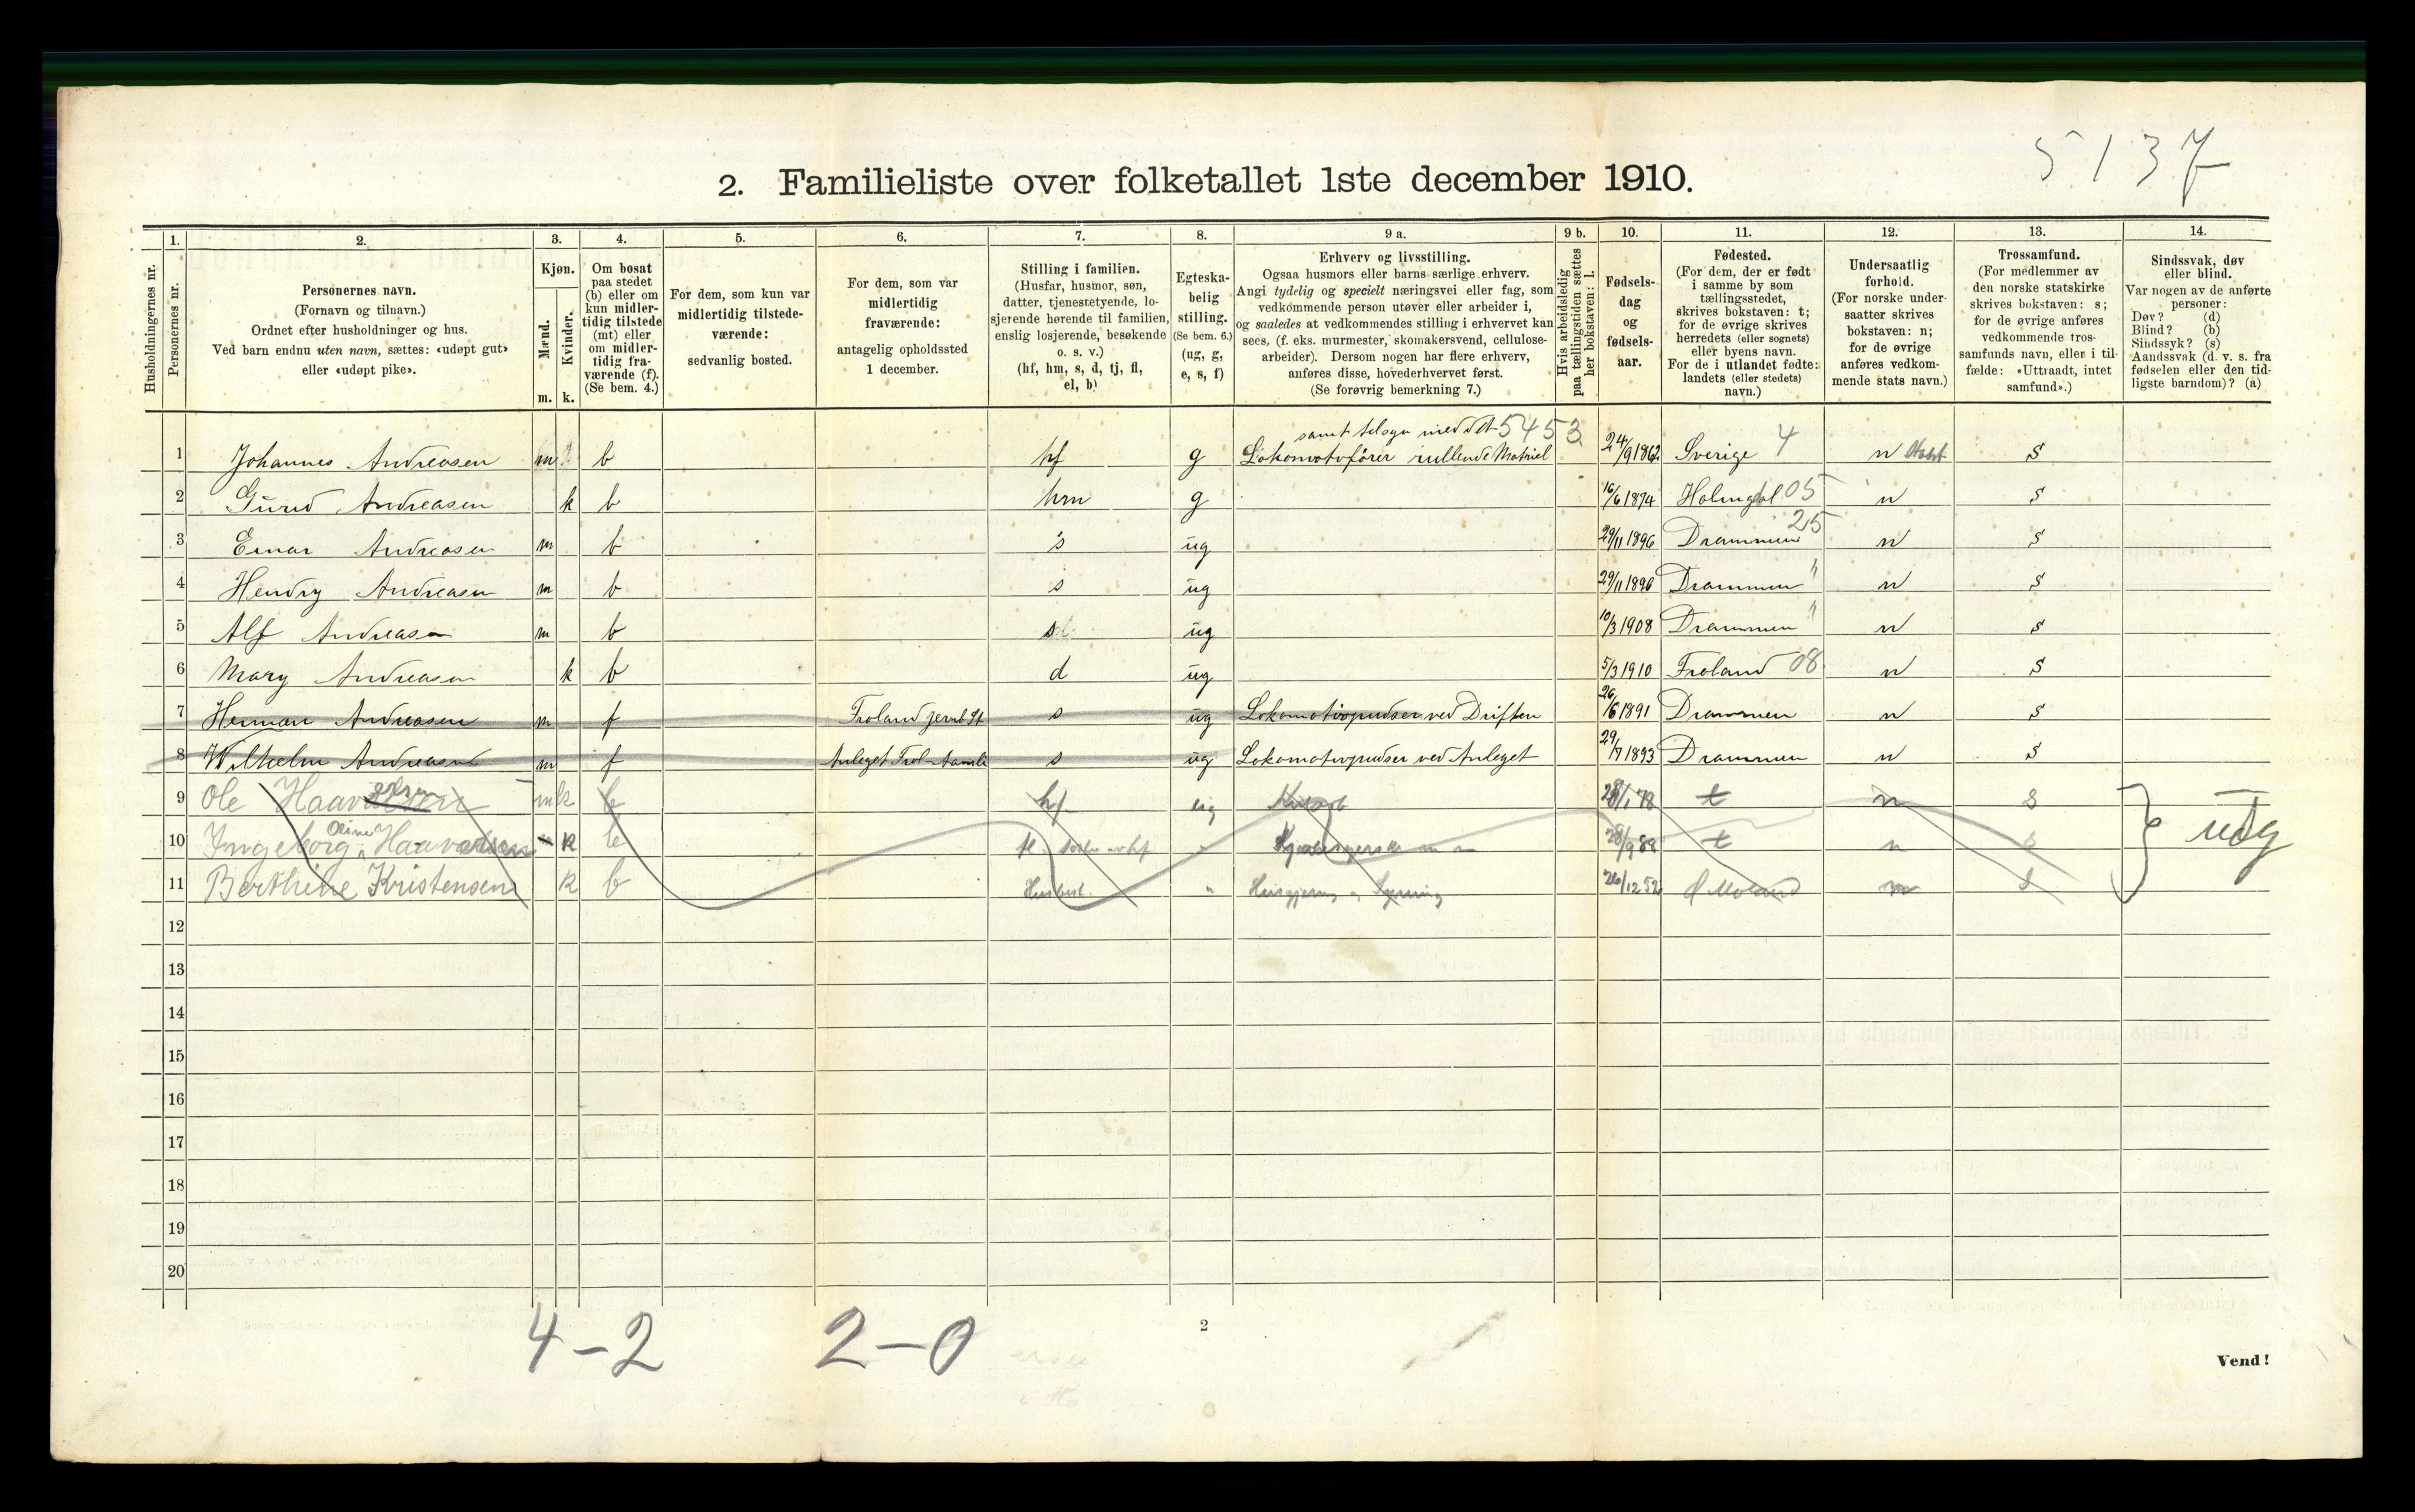 5137
2. Familieliste over folketallet 1ste december 1910.
Husholdningernes nr.
1. Personernes nr.
2. Personernes navn.
(Fornavn og tilnavn.)
Ordnet efter husholdninger og hus.
Ved barn endnu uten navn, sættes: «udøpt gut»
eller «udøpt pike».
3. Kjøn.
Mænd. m.
Kvinder. k.
4. Om bosat
paa stedet
(b) eller om
kun midler-
tidig tilstede
(mt) eller
om midler-
tidig fra-
værende (f).
(Se bem. 4.)
5. For dem, som kun var
midlertidig tilstede-
værende:
sedvanlig bosted.
6. For dem, som var
midlertidig
fraværende:
antagelig opholdssted
1 december.
7. Stilling i familien.
(Husfar, husmor, søn,
datter, tjenestetyende, lo-
sjerende hørende til familien,
enslig losjerende, besøkende
o. s. v.)
(hf, hm, s, d, tj, fl,
el, b)
8. Egteska-
belig
stilling.
(Se bem. 6.)
(ug, g,
e, s, f)
9 a. Erhverv og livsstilling.
Ogsaa husmors eller barns særlige erhverv.
Angi tydelig og specielt næringsvei eller fag, som
vedkommende person utøver eller arbeider i,
og saaledes at vedkommendes stilling i erhvervet kan
sees, (f. eks. murmester, skomakersvend, cellulose-
arbeider). Dersom nogen har flere erhverv,
anføres disse, hovederhvervet først.
(Se forøvrig bemerkning 7.)
9 b. Hvis arbeidsledig
paa tællingstiden sættes
her bokstaven: l.
10. Fødsels-
dag
og
fødsels-
aar.
11. Fødested.
(For dem, der er født
i samme by som
tællingsstedet,
skrives bokstaven: t;
for de øvrige skrives
herredets (eller sognets)
eller byens navn.
For de i utlandet fødte:
landets (eller stedets)
navn.)
12. Undersaatlig
forhold.
(For norske under-
saatter skrives
bokstaven: n;
for de øvrige
anføres vedkom-
mende stats navn.)
13. Trossamfund.
(For medlemmer av
den norske statskirke
skrives bokstaven: s;
for de øvrige anføres
vedkommende tros-
samfunds navn, eller i til-
fælde: «Uttraadt, intet
samfund».)
14. Sindssvak, døv
eller blind.
Var nogen av de anførte
personer:
Døv? (d)
Blind? (b)
Sindssyk? (s)
Aandssvak (d. v. s. fra
fødselen eller den tid-
ligste barndom)? (a)
samt tilsyn med det 5453
1 Johannes Andreasen m b hf g Lokomotivfører rullende Matriel 24/9 1862 Sverige 4 n s
2 Gurid Andreasen k b hm g 16/6 1874 05 n s
3 Einar Andreasen m b s ug 29/11 1896 Drammen 25 n s
4 Hendry Andreasen m b s ug 29/11 1896 Drammen " n s
5 Alf Andreasen m b s ug 10/3 1908 Drammen " n s
6 Mary Andreasen k b d ug 5/3 1910 Froland 08 n s
7 Herman Andreasen m f Froland jernb St s ug Lokomotivpudser ved Driften 26/6 1891 Drammen n s
8 Wilhelm Andreasen m f Anleget Frol-Aamli s ug Lokomotivpudser ved Anleget 29/7 1893 Drammen n s
9 Ole m k b hf ug 28/1 78 t n s
10 Ingeborg Oline Haavorsen k b 28/9 88 t n s
11 Berthine Kristensen k b Husbest. " Husgjerning 26/12 52 Ø Moland n s
udg
12
13
14
15
16
17
18
19
20
4 - 2 2 - 0
2
Vend!